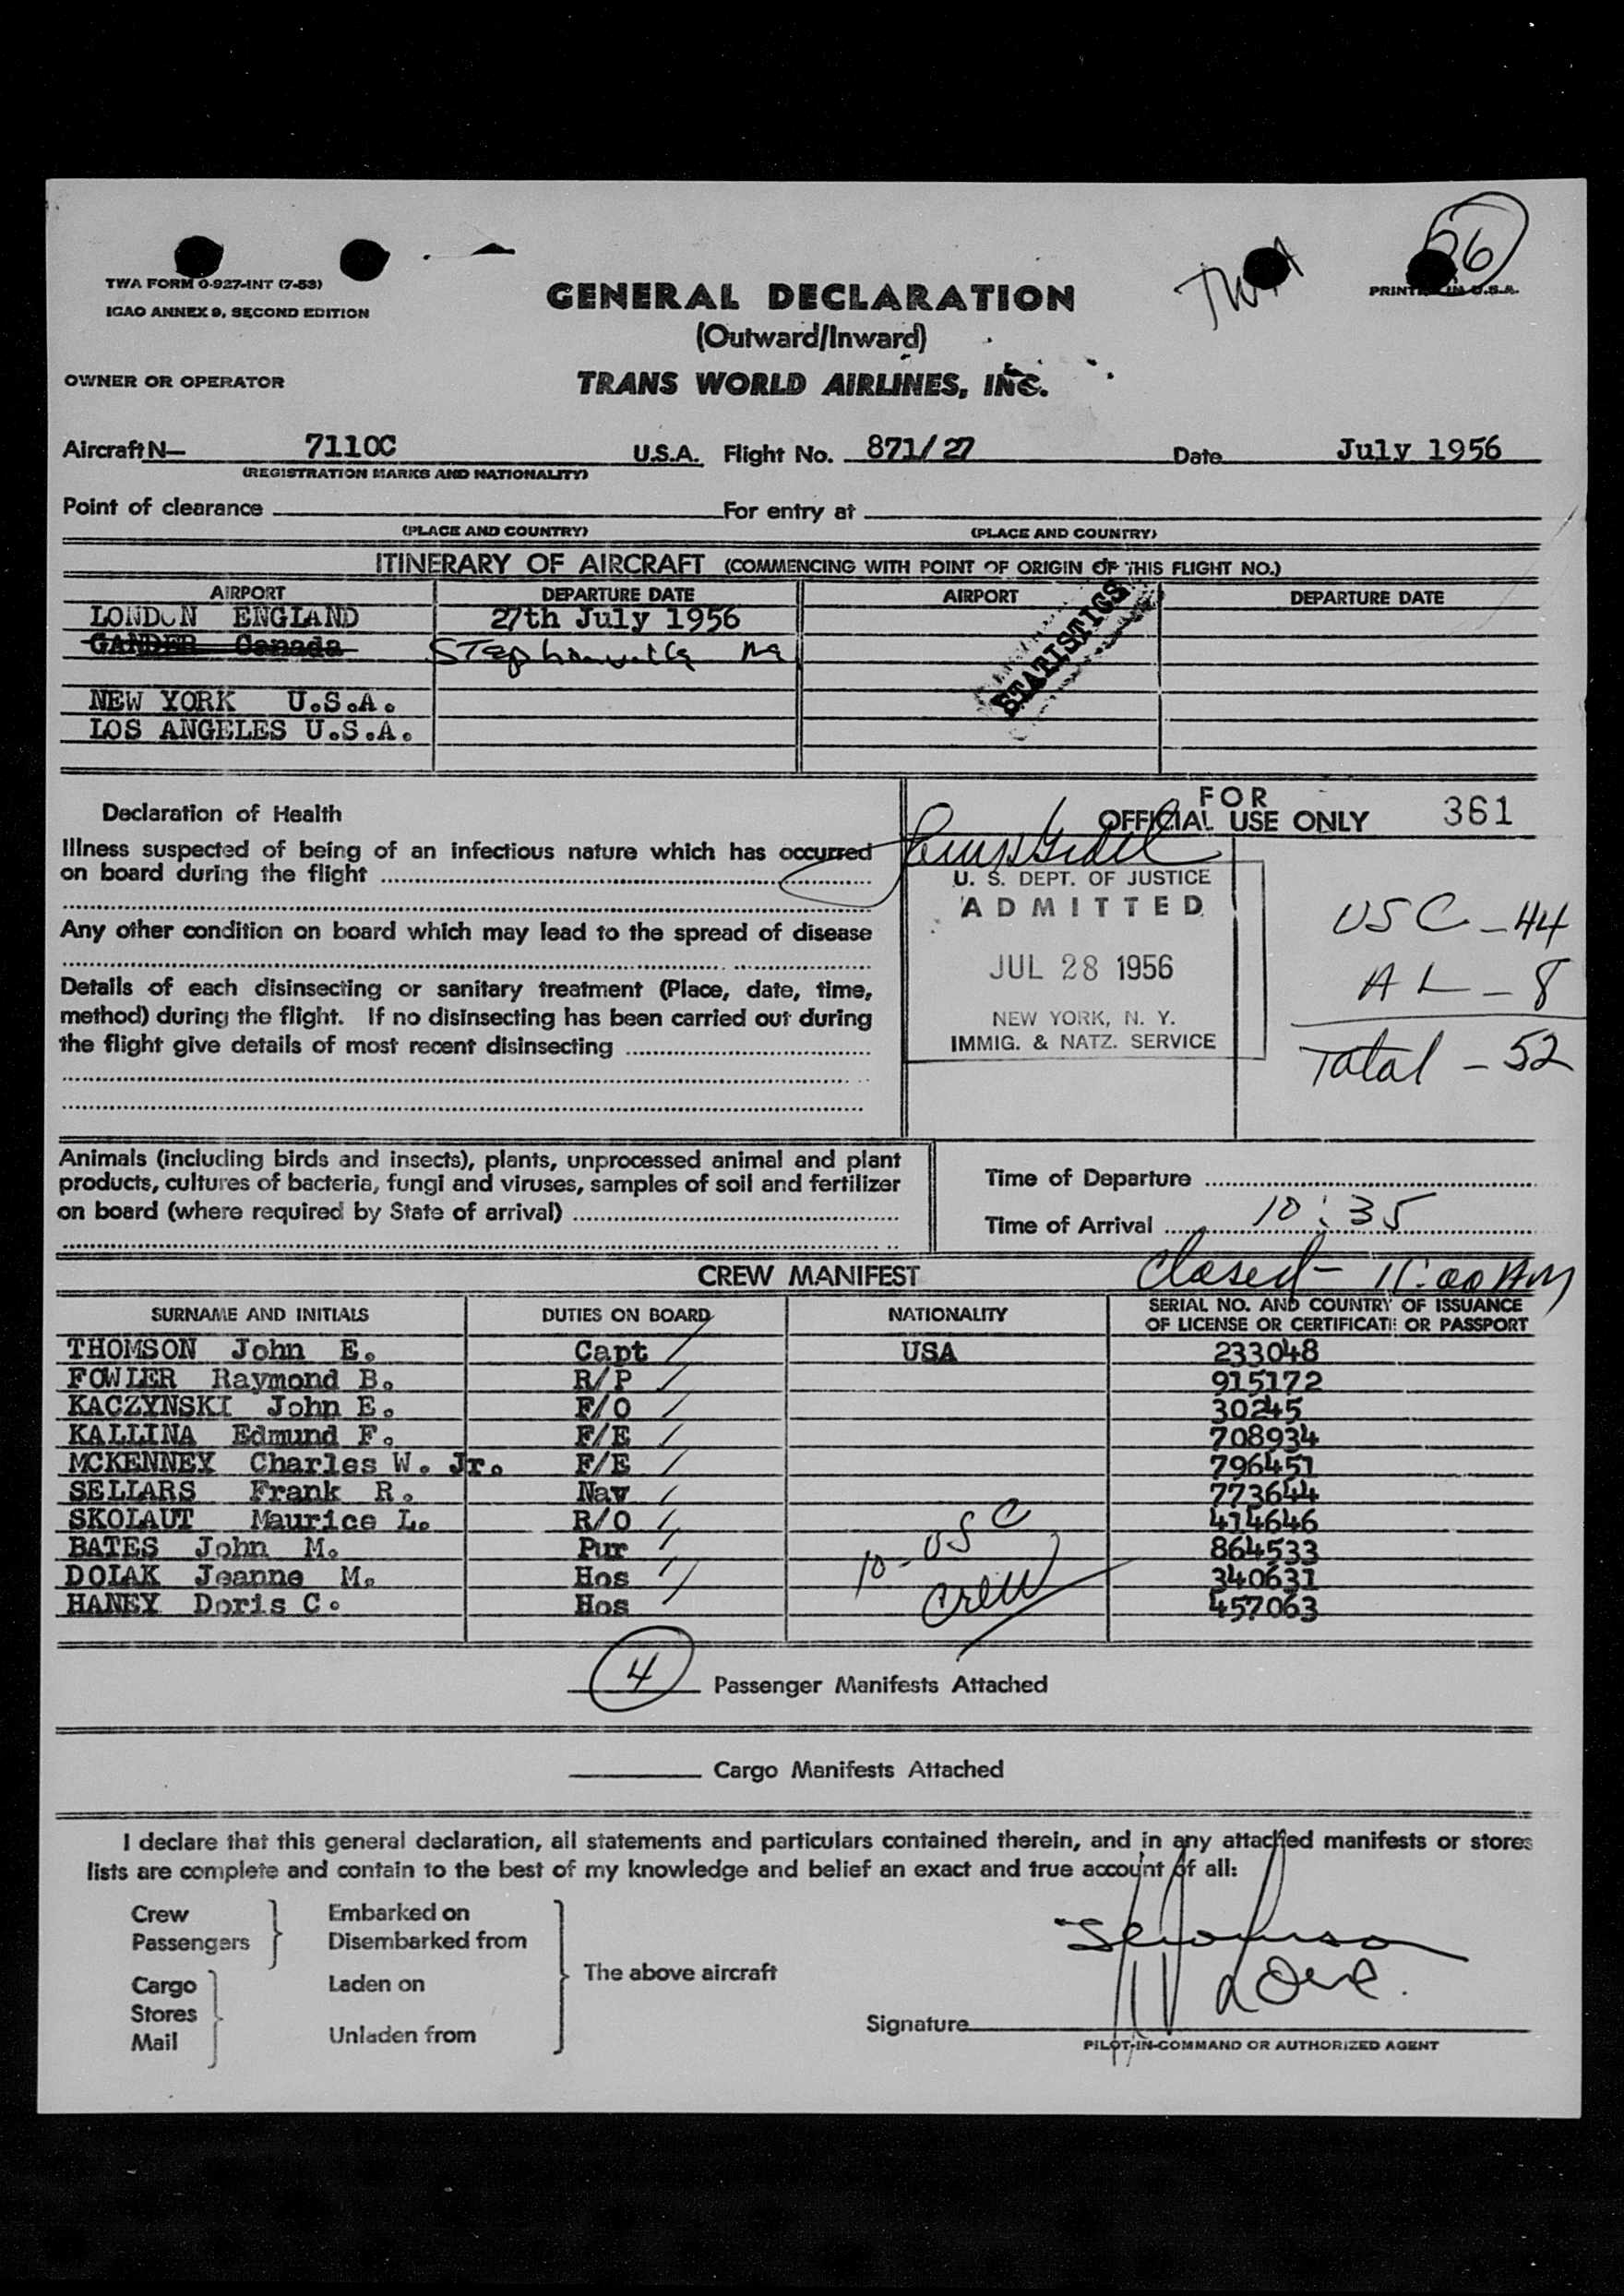 TWA 56
TWA FORM 0-927-INT (7-53)
ICAO ANNEX 9, SECOND EDITION
PRINTED IN U.S.A.
GENERAL DECLARATION
(Outward/Inward)
OWNER OR OPERATOR TRANS WORLD AIRLINES, INC.
Aircraft N— 7110C U.S.A. Flight No. 871/27 Date July 1956
(REGISTRATION MARKS AND NATIONALITY)
Point of clearance For entry at
(PLACE AND COUNTRY) (PLACE AND COUNTRY)
ITINERARY OF AIRCRAFT (COMMENCING WITH POINT OF ORIGIN OF THIS FLIGHT NO.)
AIRPORT DEPARTURE DATE AIRPORT DEPARTURE DATE
LONDON ENGLAND 27th July 1956
GANDER Canada Stephenville
STATISTICS
NEW YORK U.S.A.
LOS ANGELES U.S.A.
Declaration of Health
Illness suspected of being of an infectious nature which has occurred
on board during the flight
Any other condition on board which may lead to the spread of disease
Details of each disinsecting or sanitary treatment (Place, date, time,
method) during the flight. If no disinsecting has been carried out during
the flight give details of most recent disinsecting
FOR
OFFICIAL USE ONLY 361
U. S. DEPT. OF JUSTICE
ADMITTED
JUL 28 1956
NEW YORK, N. Y.
IMMIG. & NATZ. SERVICE
USC - 44
AL - 8
Total - 52
Animals (including birds and insects), plants, unprocessed animal and plant
products, cultures of bacteria, fungi and viruses, samples of soil and fertilizer
on board (where required by State of arrival)
Time of Departure
Time of Arrival 10:35
Closed - 11:00 AM
CREW MANIFEST
SURNAME AND INITIALS DUTIES ON BOARD NATIONALITY SERIAL NO. AND COUNTRY OF ISSUANCE
OF LICENSE OR CERTIFICATE OR PASSPORT
THOMSON John E. Capt USA 233048
FOWLER Raymond B. R/P 915172
KACZYNSKI John E. F/O 30245
KALLINA Edmund F. F/E 708934
MCKENNEY Charles W. Jr. F/E 796451
SELLARS Frank R. Nav 773644
SKOLAUT Maurice L. R/O 414646
BATES John M. Pur 864533
DOLAK Jeanne M. Hos 340631
HANEY Doris C. Hos 457063
10 - USC
Crew
4 Passenger Manifests Attached
Cargo Manifests Attached
I declare that this general declaration, all statements and particulars contained therein, and in any attached manifests or stores
lists are complete and contain to the best of my knowledge and belief an exact and true account of all:
Crew Embarked on
Passengers Disembarked from
The above aircraft
Cargo Laden on
Stores
Mail Unladen from
Signature
PILOT-IN-COMMAND OR AUTHORIZED AGENT